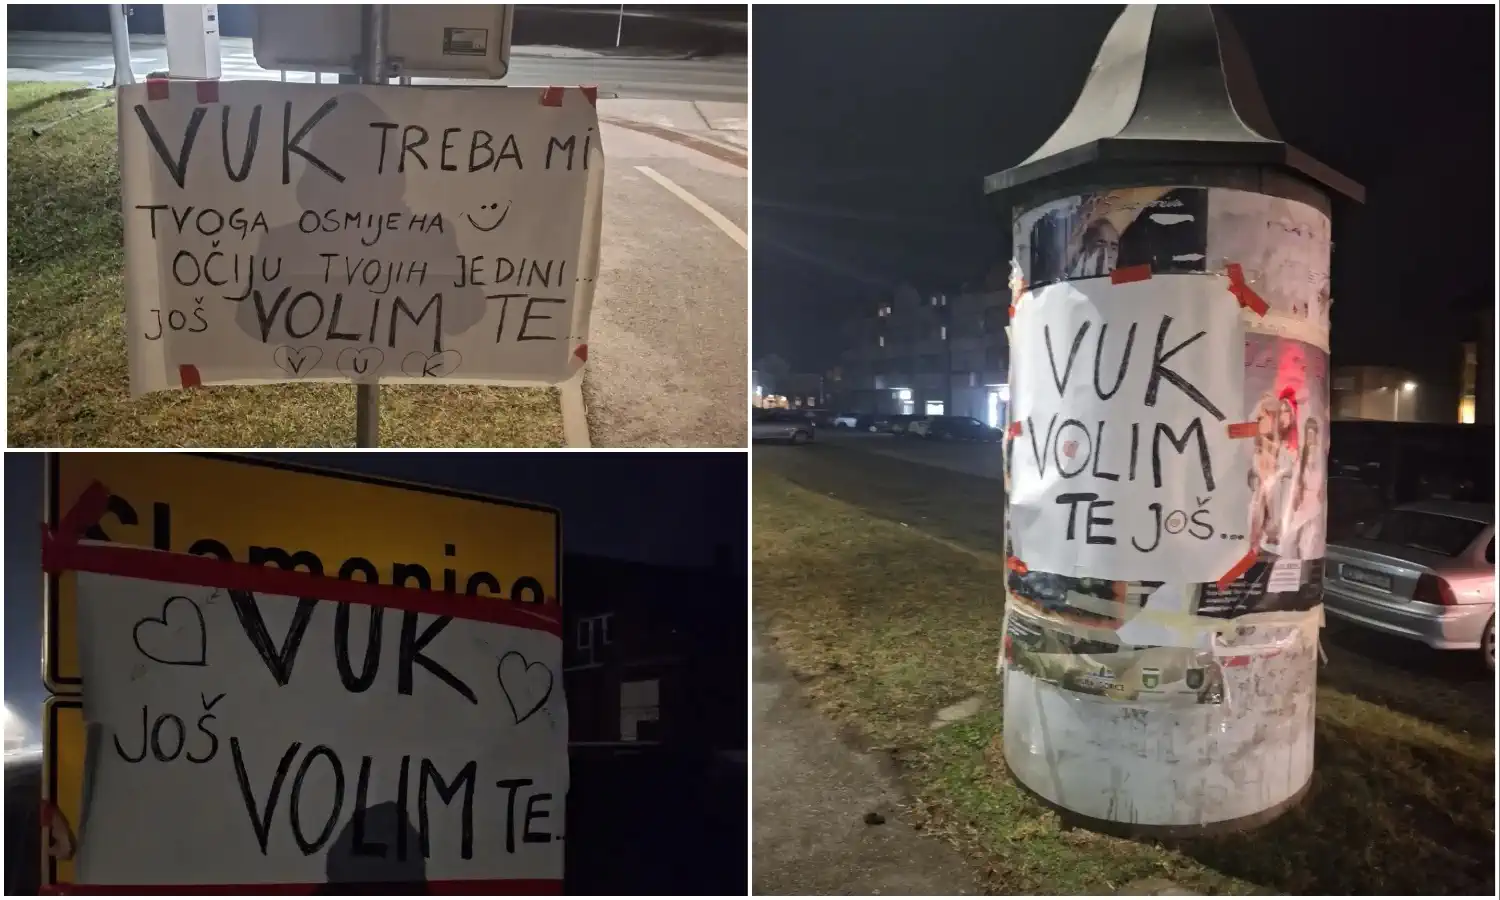 VUK TREBA Mi
TVOGA OSMIJEHA
OČIJU TVOJIH JEDINI...
JOŠ VOLIM TE...
V U K
Slomonice
VUK
JOŠ VOLIM TE...
VUK
VOLIM
TE JOŠ...